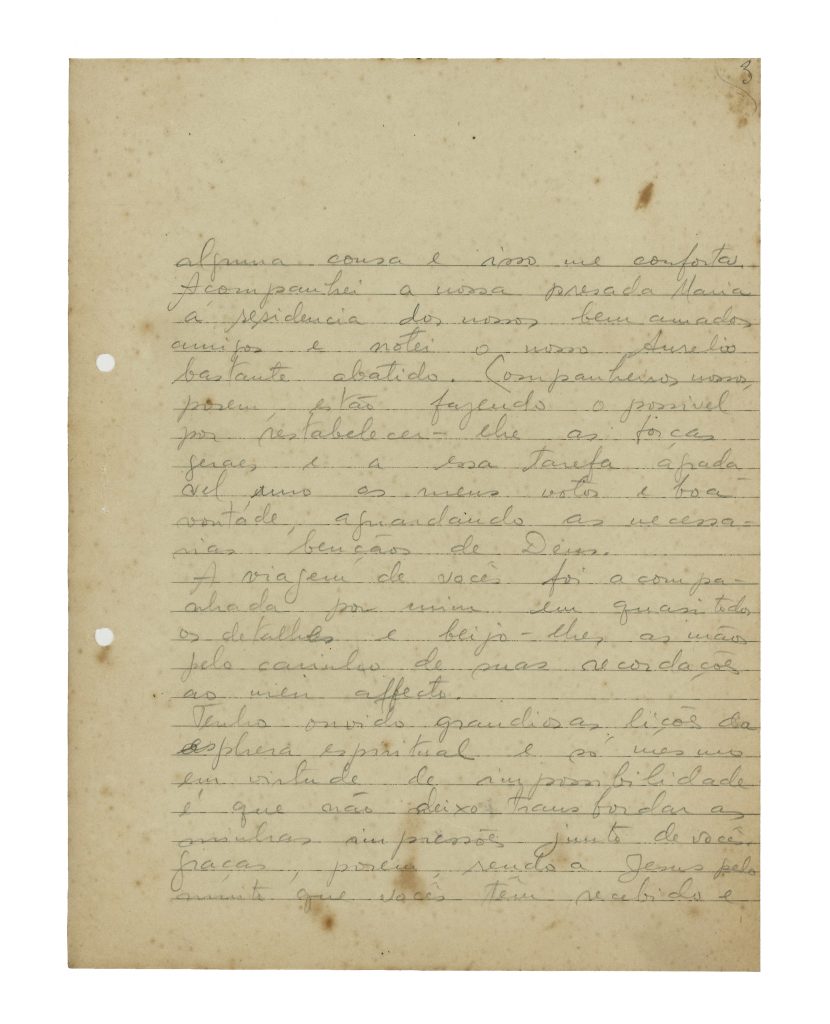 3
alguma cousa e isso me conforta.
Acompanhei a nossa presada Maria
a residencia dos nossos bem amados
amigos e notei o nosso Aurelio
bastante abatido. Companheiros nossos,
porem, estão fazendo o possivel
por restabelecer-lhe as forças
geraes e a essa tarefa agrada
vel, uno os meus votos e boa
vontade, aguardando as necessa-
rias bençãos de Deus.
A viagem de vocês foi acompa-
nhada por mim em quasi todos
os detalhes e beijo-lhes as mãos
pelo carinho de suas recordações
ao meu affecto.
Tenho ouvido grandiosas lições da
esphera espiritual e só mesmo
em virtude de impossibilidade
é que não deixo transbordar as
minhas impressões junto de vocês.
Graças, porem, rendo a Jesus pelo
muito que vocês têm recebido e